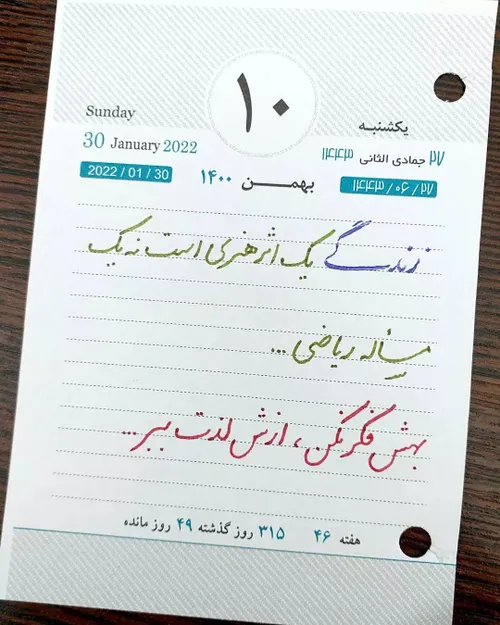 ۱۰
Sunday
یکشنبه
30 January 2022
۲۷ جمادی الثانی ۱۴۴۳
2022 / 01 / 30
بهمن ۱۴۰۰
۱۴۴۳ / ۰۶ / ۲۷
زندگی یک اثر هنری است نه یک
مسأله ریاضی ...
بهش فکر نکن ، ازش لذت ببر ...
هفته ۴۶ ۳۱۵ روز گذشته ۴۹ روز مانده